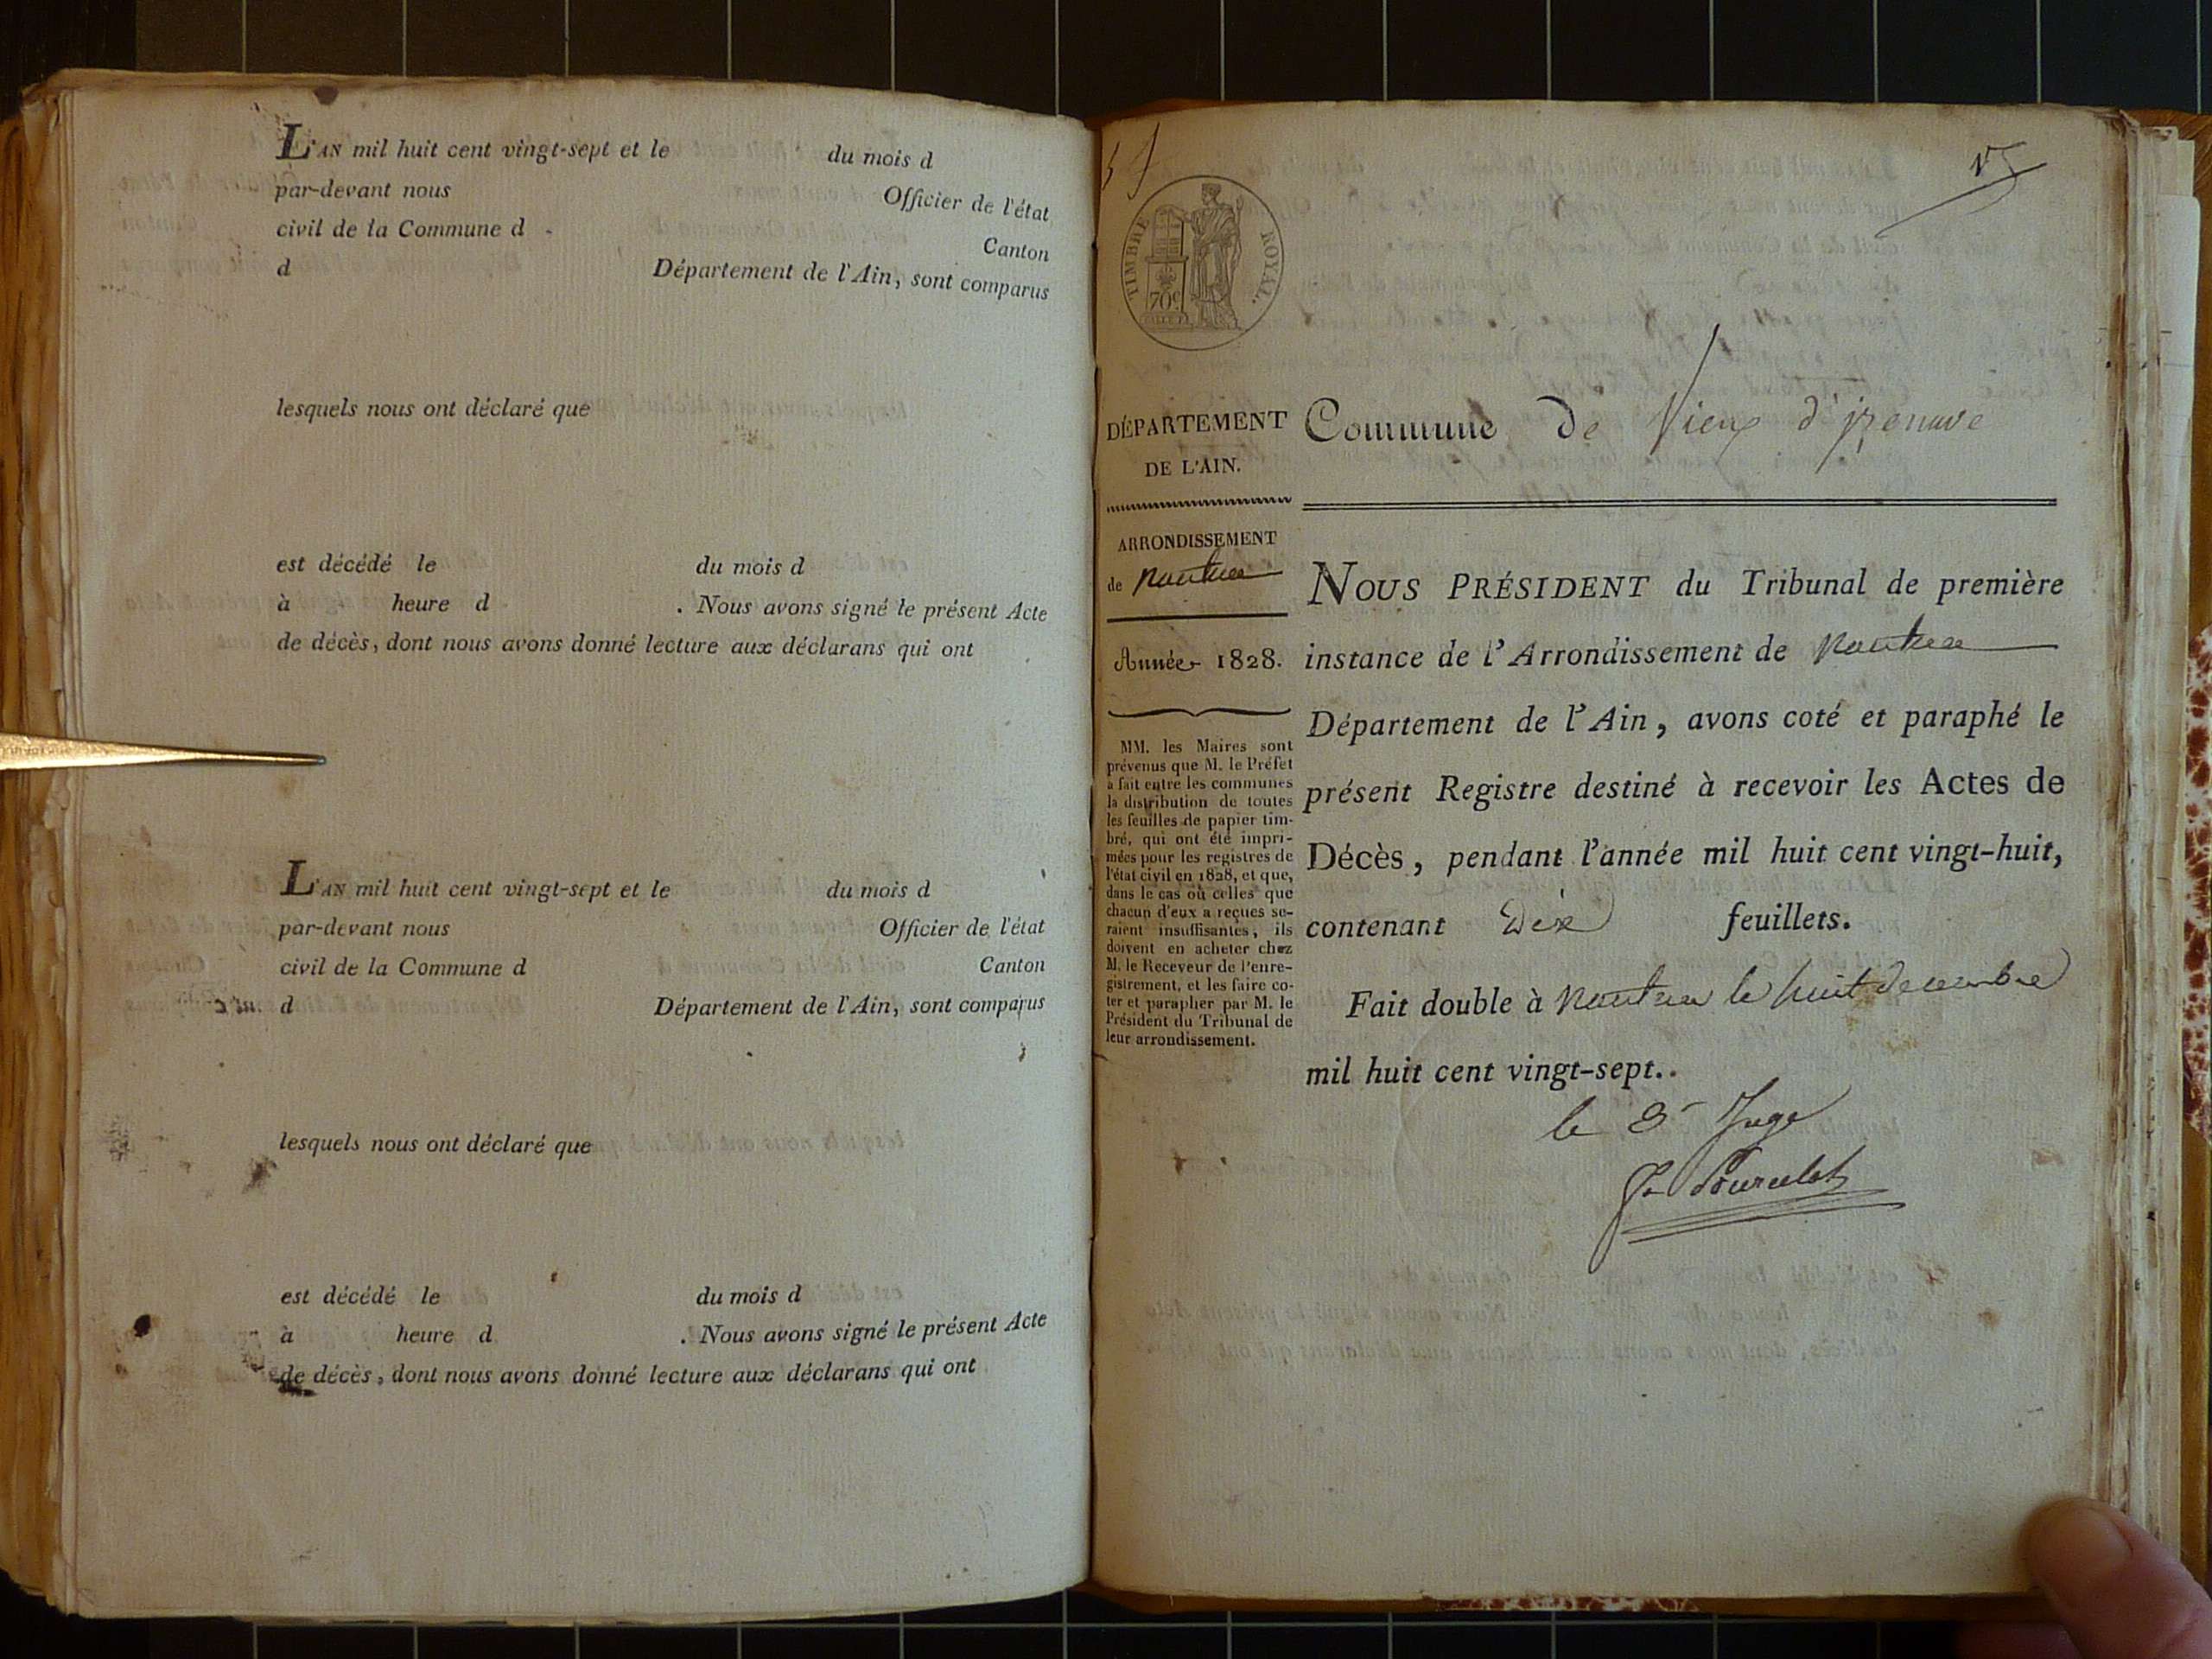 L'AN mil huit cent vingt-sept et le du mois d
par-devant nous Officier de l'état
civil de la Commune d Canton
d Département de l'Ain, sont comparus
lesquels nous ont déclaré que
est décédé le du mois d
à heure d . Nous avons signé le présent Acte
de décès, dont nous avons donné lecture aux déclarans qui ont
L'AN mil huit cent vingt-sept et le du mois d
par-devant nous Officier de l'état
civil de la Commune d Canton
d Département de l'Ain, sont comparus
lesquels nous ont déclaré que
est décédé le du mois d
à heure d . Nous avons signé le présent Acte
de décès, dont nous avons donné lecture aux déclarans qui ont
TIMBRE ROYAL.
70c
DÉPARTEMENT
DE L'AIN.
ARRONDISSEMENT
de Nantua
Année 1828.
MM. les Maires sont
prévenus que M. le Préfet
a fait entre les communes
la distribution de toutes
les feuilles de papier tim-
bré, qui ont été impri-
mées pour les registres de
l'état civil en 1828, et que,
dans le cas où celles que
chacun d'eux a reçues se-
raient insuffisantes, ils
doivent en acheter chez
M. le Receveur de l'enre-
gistrement, et les faire co-
ter et parapher par M. le
Président du Tribunal de
leur arrondissement.
Commune de Vieux d'izenave
NOUS PRÉSIDENT du Tribunal de première
instance de l'Arrondissement de Nantua
Département de l'Ain, avons coté et paraphé le
présent Registre destiné à recevoir les Actes de
Décès, pendant l'année mil huit cent vingt-huit,
contenant Dix feuillets.
Fait double à Nantua le huit decembre
mil huit cent vingt-sept..
le Juge